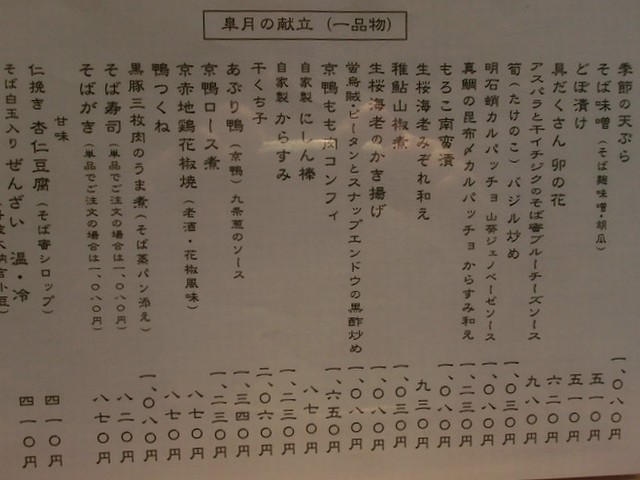 皐月の献立（一品物）
季節の天ぷら 一、〇八〇円
そば味噌（そば麹味噌・胡瓜） 五一〇円
どぼ漬け 五一〇円
具だくさん 卯の花 六二〇円
アスパラと干イチジクのそば審ブルーチーズソース 九八〇円
筍（たけのこ）バジル炒め 一、〇三〇円
明石蛸カルパッチョ 山葵ジェノベーゼソース 一、〇八〇円
真鯛の昆布〆カルパッチョ からすみ和え 一、〇八〇円
もろこ南蛮漬 一、〇八〇円
生桜海老みぞれ和え 九三〇円
稚鮎山椒煮 一、〇三〇円
生桜海老のかき揚げ 一、〇八〇円
蛍烏賊・ピータンとスナップエンドウの黒酢炒め 一、〇八〇円
京鴨もも肉コンフィ 一、六五〇円
自家製 にしん棒 八七〇円
自家製 からすみ 一、二三〇円
干くち子 二、〇六〇円
あぶり鴨（京鴨）九条葱のソース 一、三四〇円
京鴨ロース煮 一、二三〇円
京赤地鶏花椒焼（老酒・花椒風味） 八七〇円
鴨つくね 八七〇円
黒豚三枚肉のうま煮（そば蒸パン添え） 一、〇八〇円
そば寿司（単品でご注文の場合は一、〇八〇円） 八二〇円
そばがき（単品でご注文の場合は一、〇八〇円） 八七〇円
甘味
仁挽き 杏仁豆腐（そば審シロップ） 四一〇円
そば白玉入り ぜんざい 温・冷 四一〇円